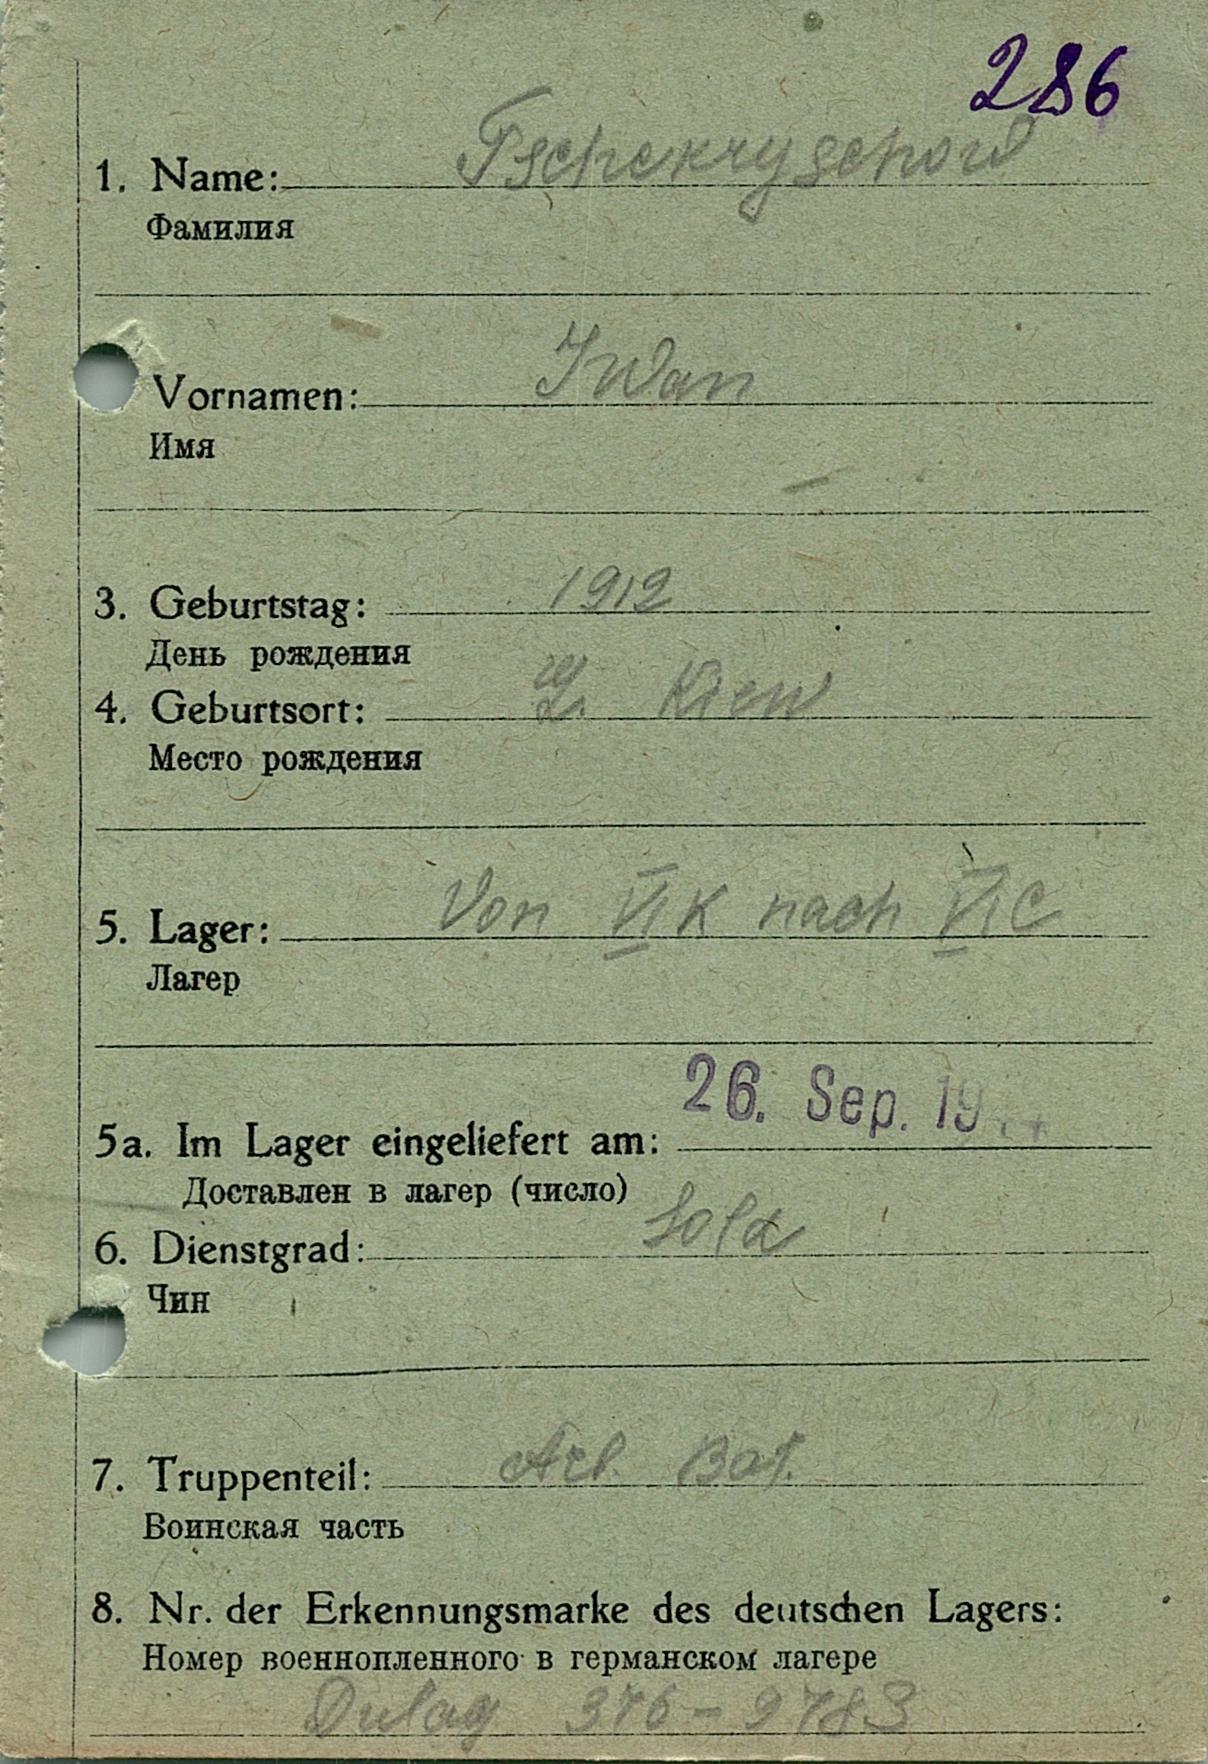 286
1. Name: Tschekryschow
Фамилия
Vornamen: Iwan
Имя
3. Geburtstag: 1912
День рождения
4. Geburtsort: Kiew
Место рождения
5. Lager: Von VI K nach VI C
Лагер
5a. Im Lager eingeliefert am: 26. Sep. 19
Доставлен в лагер (число)
6. Dienstgrad: Sold
Чин
7. Truppenteil: Arb. Bat.
Воинская часть
8. Nr. der Erkennungsmarke des deutschen Lagers:
Номер военнопленного в германском лагере
Dulag 376 - 9783